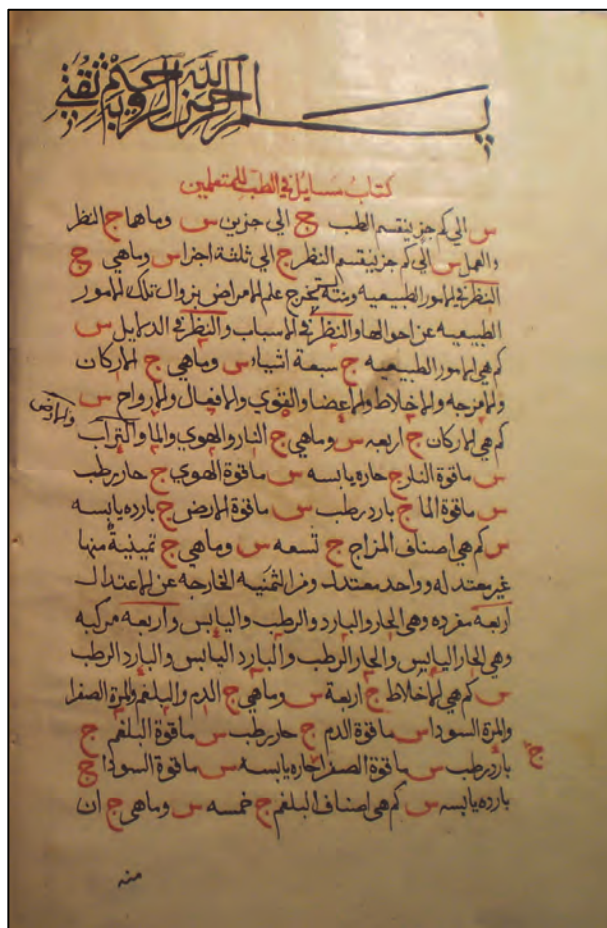 بسم الله الرحمن الرحيم وبه ثقتي
كتاب مسايل في الطب للمتعلمين
س الي كم جز ينقسم الطب ج الي جزين س وما هما ج النظر
والعمل س الي كم جز ينقسم النظر ج الي ثلثة اجزا س وماهي ج
النظر في الامور الطبيعيه ومنه يستخرج علم الامراض بزوال تلك الامور
الطبيعيه عن احوالها والنظر في الاسباب والنظر في الدلايل س
كم هي الامور الطبيعيه ج سبعة اشيا س وماهي ج الاركان
والامزجه والاخلاط والاعضا والقوي والافعال والارواح س
كم هي الاركان ج اربعه س وماهي ج النار والهوي والما والتراب
والارض
س ما قوة النار ج حاره يابسه س ما قوة الهوي ج حار رطب
س ما قوة الما ج بارد رطب س ما قوة الارض ج بارده يابسه
س كم هي اصناف المزاج ج تسعه س وماهي ج ثمينية منها
غير معتدله وواحد معتدل ومن الثمنيه الخارجه عن الاعتدال
اربعه مفرده وهي الحار والبارد والرطب واليابس واربعه مركبه
وهي الحار اليابس والحار الرطب والبارد اليابس والبارد الرطب
س كم هي الاخلاط ج اربعة س وماهي ج الدم والبلغم والمرة الصفرا
والمرة السودا س ما قوة الدم ج حار رطب س ما قوة البلغم ج
بارد رطب س ما قوة الصفرا ج حاره يابسه س ما قوة السودا ج
بارده يابسه س كم هي اصناف البلغم ج خمسه س وماهي ج ان
منه